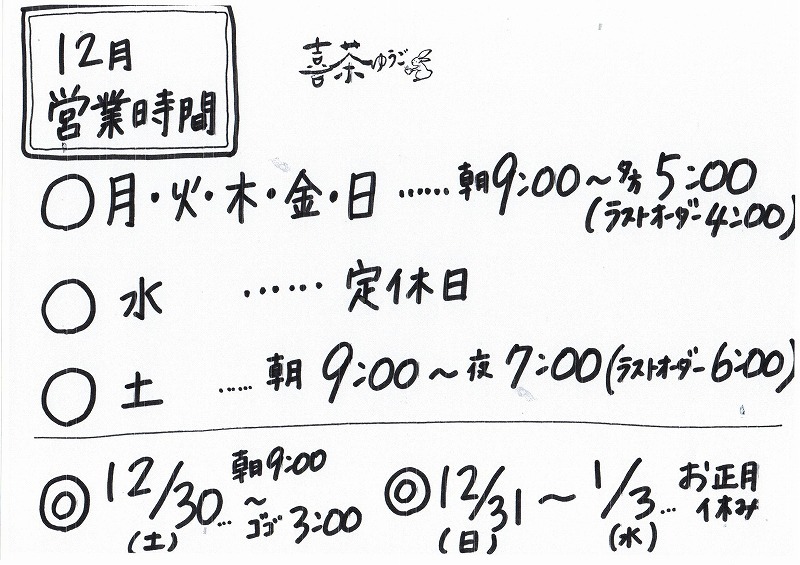 12月
営業時間
喜茶ゆうご
○月・火・木・金・日 ……朝9:00〜夕方5:00
(ラストオーダー4:00)
○水 ……定休日
○土 ……朝9:00〜夜7:00(ラストオーダー6:00)
◎12/30…朝9:00〜ゴゴ3:00
(土)
◎12/31〜1/3…お正月休み
(日) (水)